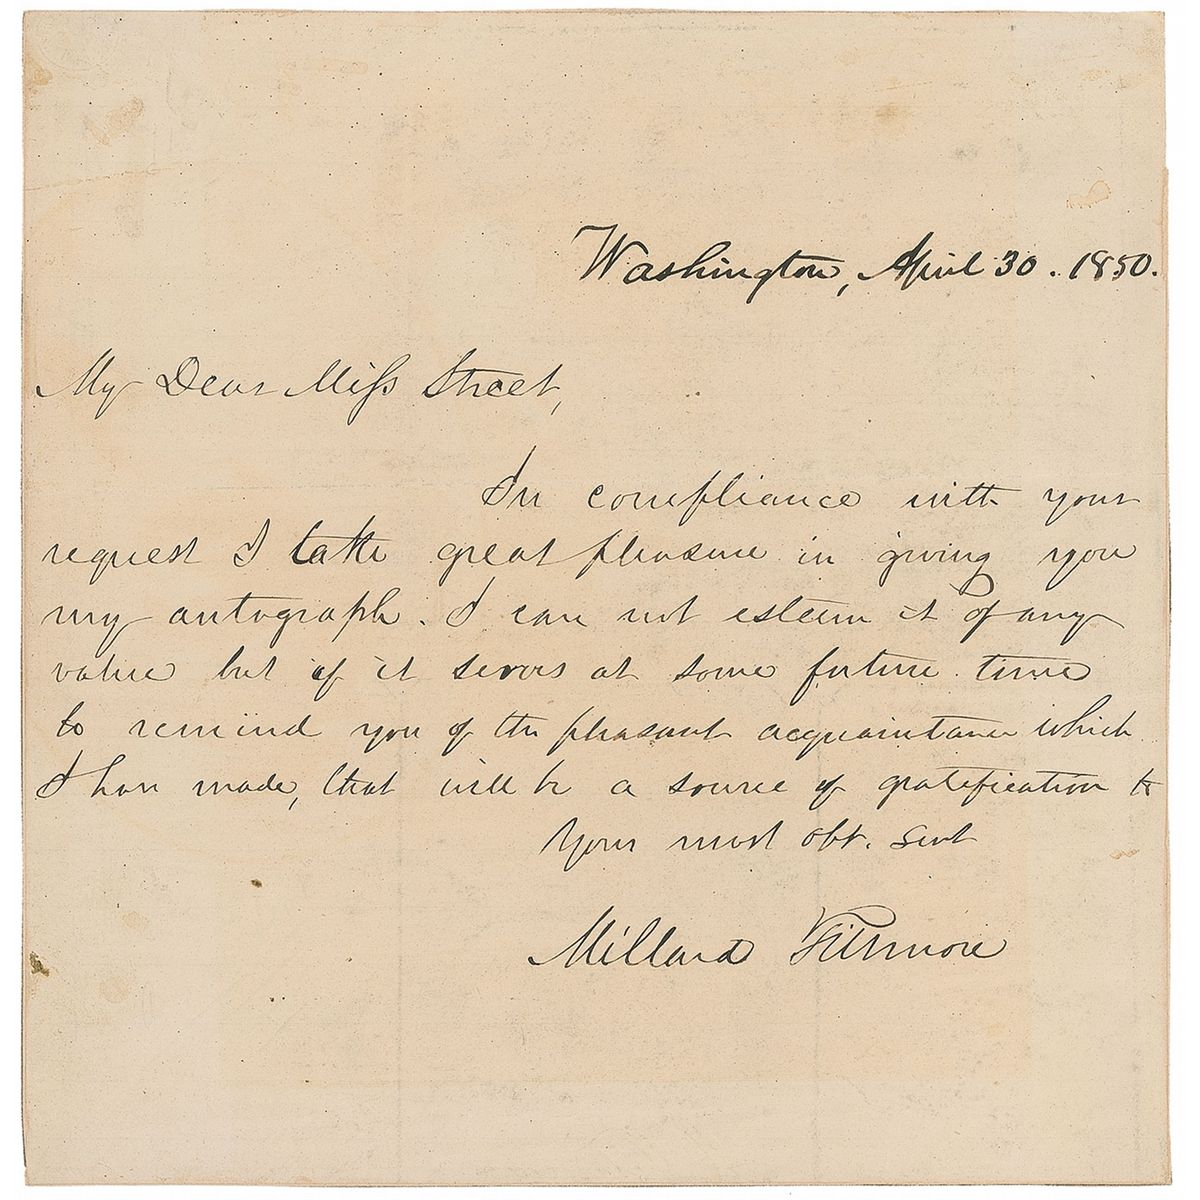 Washington, April 30. 1850.
My Dear Miss Street,
In compliance with your
request I take great pleasure in giving you
my autograph. I can not esteem it of any
value but if it serves at some future time
to remind you of the pleasant acquaintance which
I have made, that will be a source of gratification to
Your most obt. Servt
Millard Fillmore